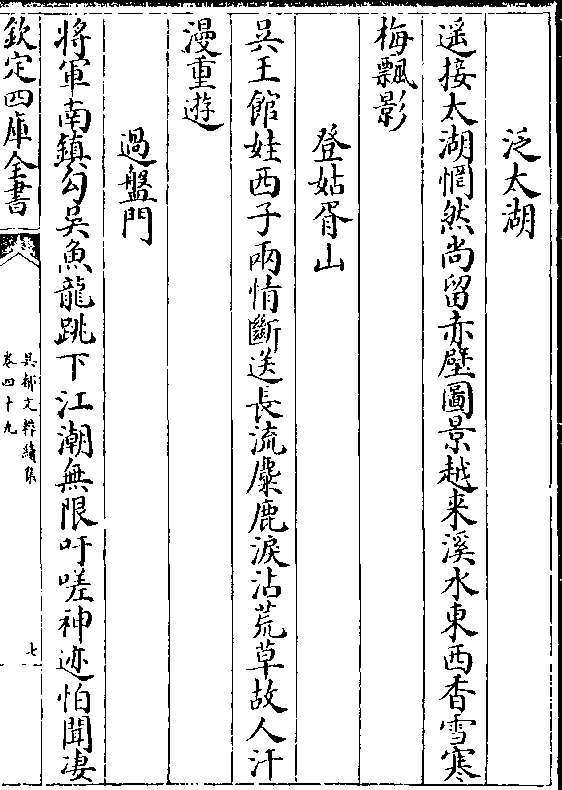 泛太湖
遥接太湖惘然尚留赤壁圖景越来溪水東西香雪寒
梅飄影
登姑胥山
吳王館娃西子兩情斷送長流麋鹿淚沾荒草故人汗
漫重遊
過盤門
將軍南鎮勾吳魚龍跳下江潮無限吁嗟神迹怕聞凄
欽定四庫全書
吳都文粹續集
卷四十九
七